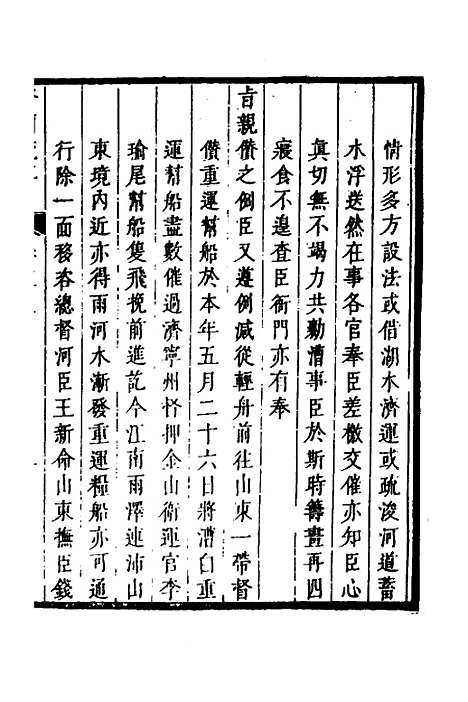 情形多方設法或借湖水濟運或疏浚河道蓄
水浮送然在事各官奉臣差檄交催亦知臣心
真切無不竭力共勷漕事臣於斯時籌畫再四
寢食不遑查臣衙門亦有奉
旨親儧之例臣又遵例减從輕舟前往山東一帶督
儧重運幫船於本年五月二十六日將漕白重
運幫船盡數催過濟寧州督押金山衛運官李
瑜尾幫船隻飛挽前進訖今江南雨澤連沛山
東境內近亦得雨河水漸發重運糧船亦可通
行除一面移咨總督河臣王新命山東撫臣錢